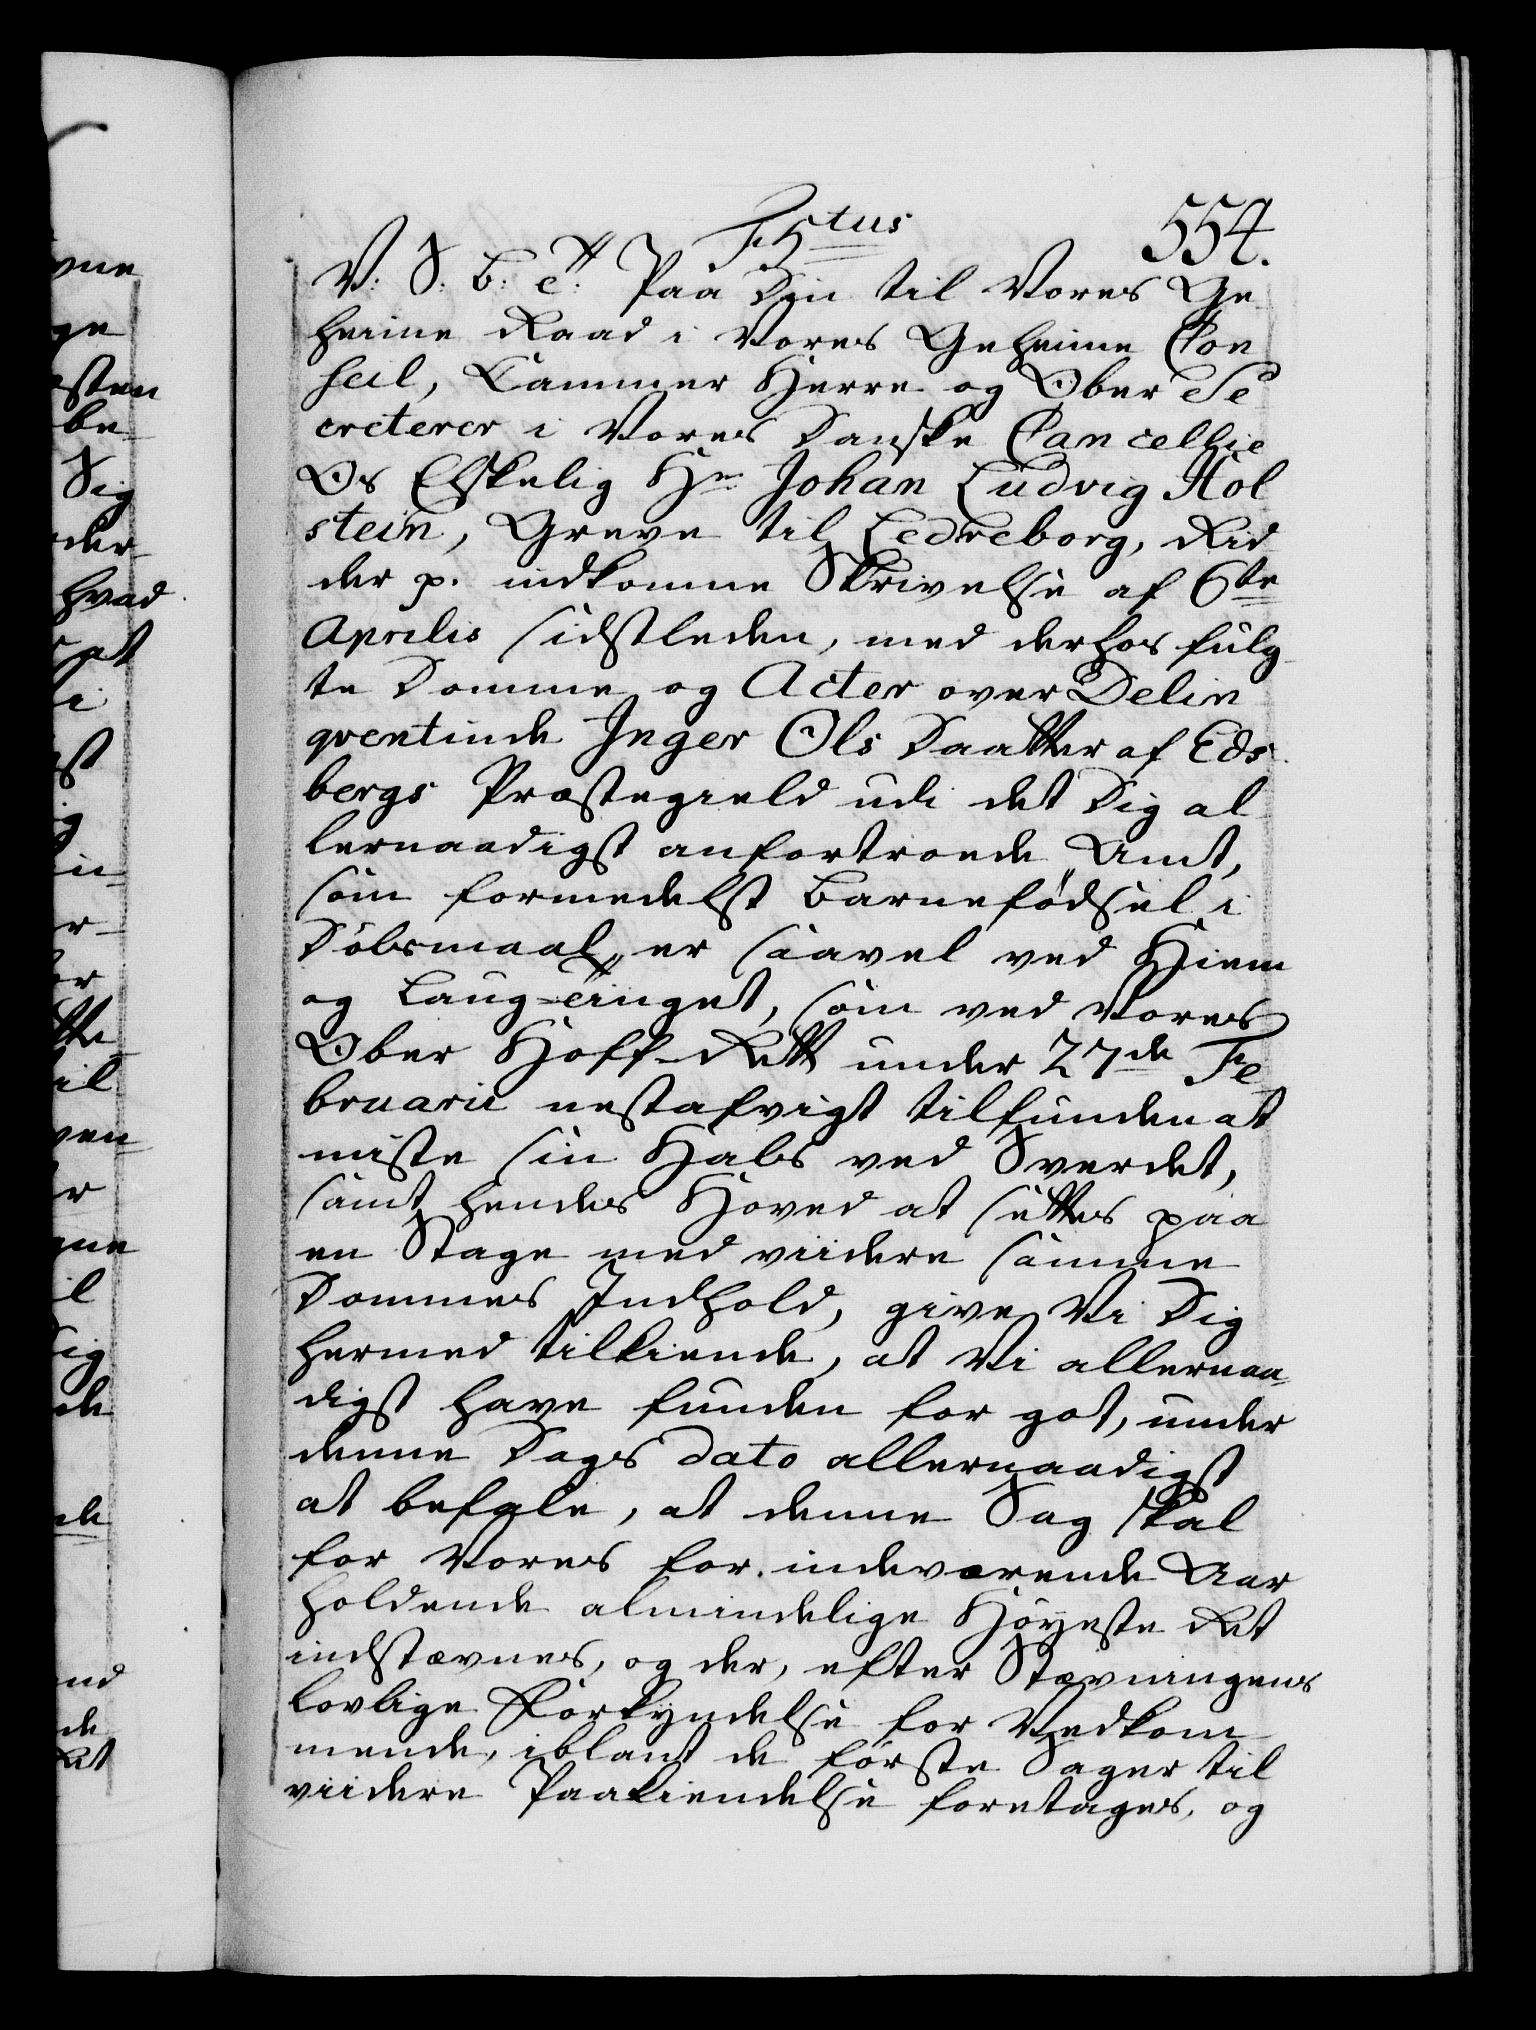 F 5tus
554.
V: S: B: C: Paa Din til Vores Ge
heime Raad i Vores Geheime Con
seil, Cammer Herre og Ober Se
creterer i Vores Danske Cancellie
Os Elskelig Hr Johan Ludvig Hol
stein, Greve til Ledreborg, Rid
der p. indkomne Skrivelse af 6te
Aprilis sidstleden, med derhos fulg
te Domme og Acter over Delin
qventinde Inger Ols Daatter af Eds
bergs Præstegield udi det Dig al
lernaadigst anfortroede Amt,
som formedelst Barnefødsel i
Dølsmaal, er saavel ved Hiem
og Laug-tinget, som ved Vores
Ober Hoff-Rett under 27de Fe
bruarii nestafvigt tilfunden at
miste sin Hals ved Sverdet,
samt hendes Hoved at settes paa
en Stage med viidere samme
Dommes Indhold, give Vi Dig
hermed tilkiende, at Vi allernaa
digst have funden for got, under
denne Dags dato allernaadigst
at befale, at denne Sag skal
for Vores for indeværende Aar
holdende almindelige Høyeste Ret
indstævnes, og der, efter Stævningens
lovlige Forkyndelse for Vedkom
mende, iblant de første Sager til
viidere Paakiendelse foretages, og